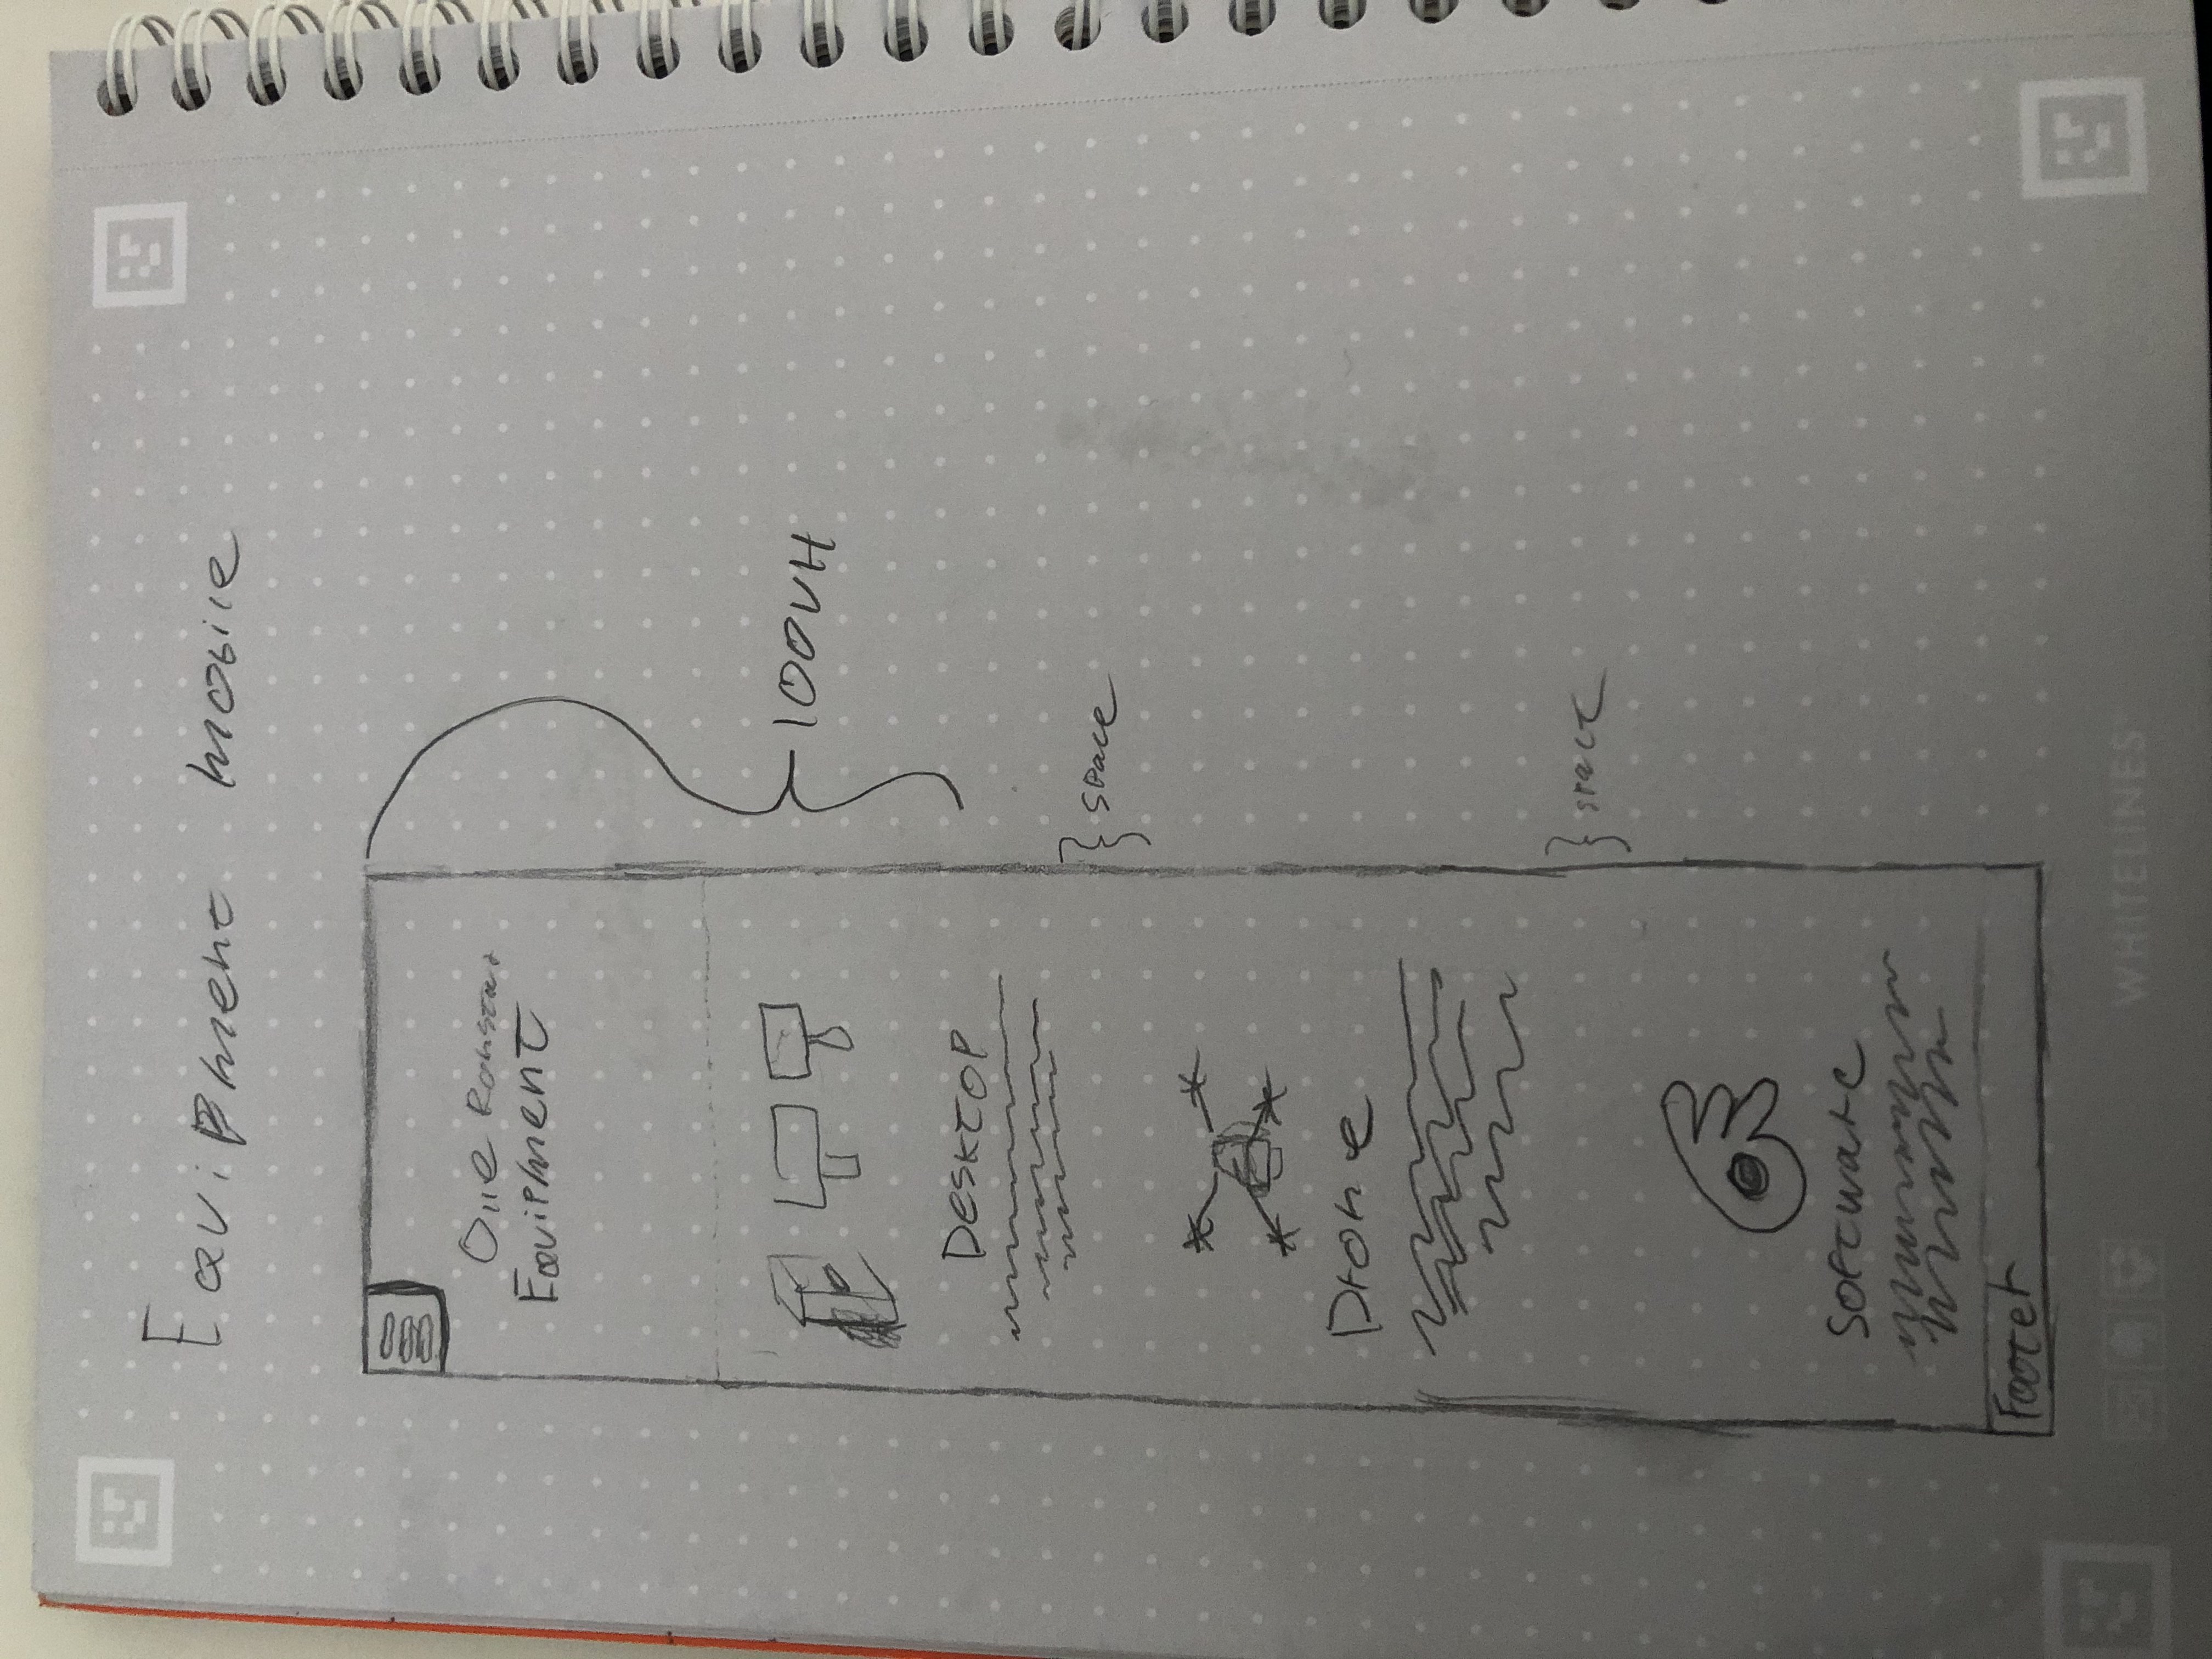 Equipment mobile
Olle
Equipment
100VH
Desktop
space
Drone
space
Software
Footer
WHITELINES